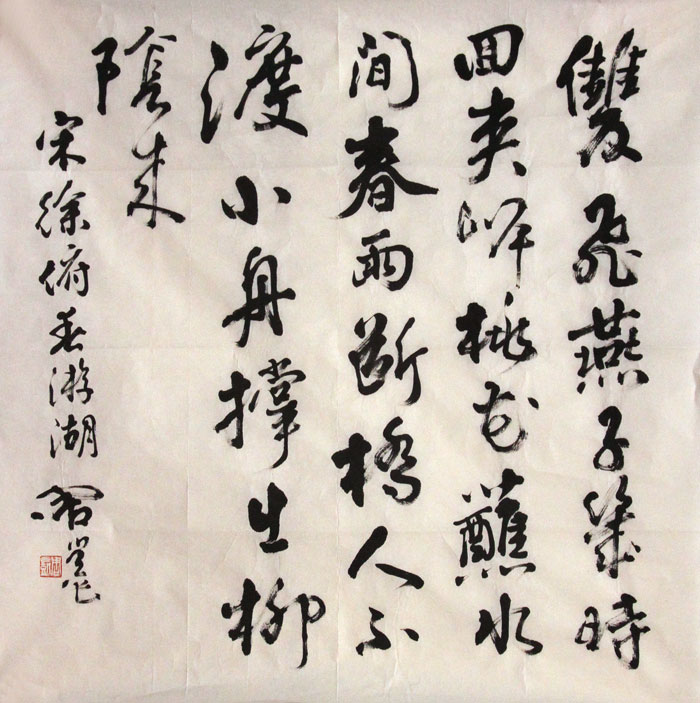 雙飛燕子幾時
回夾岸桃花蘸水
開春雨断橋人不
渡小舟撐出柳
陰來
宋徐俯春游湖